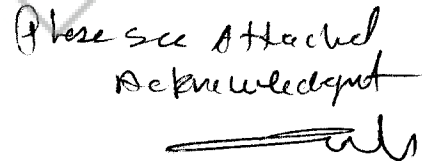 Please see Attached
Acknowledgment